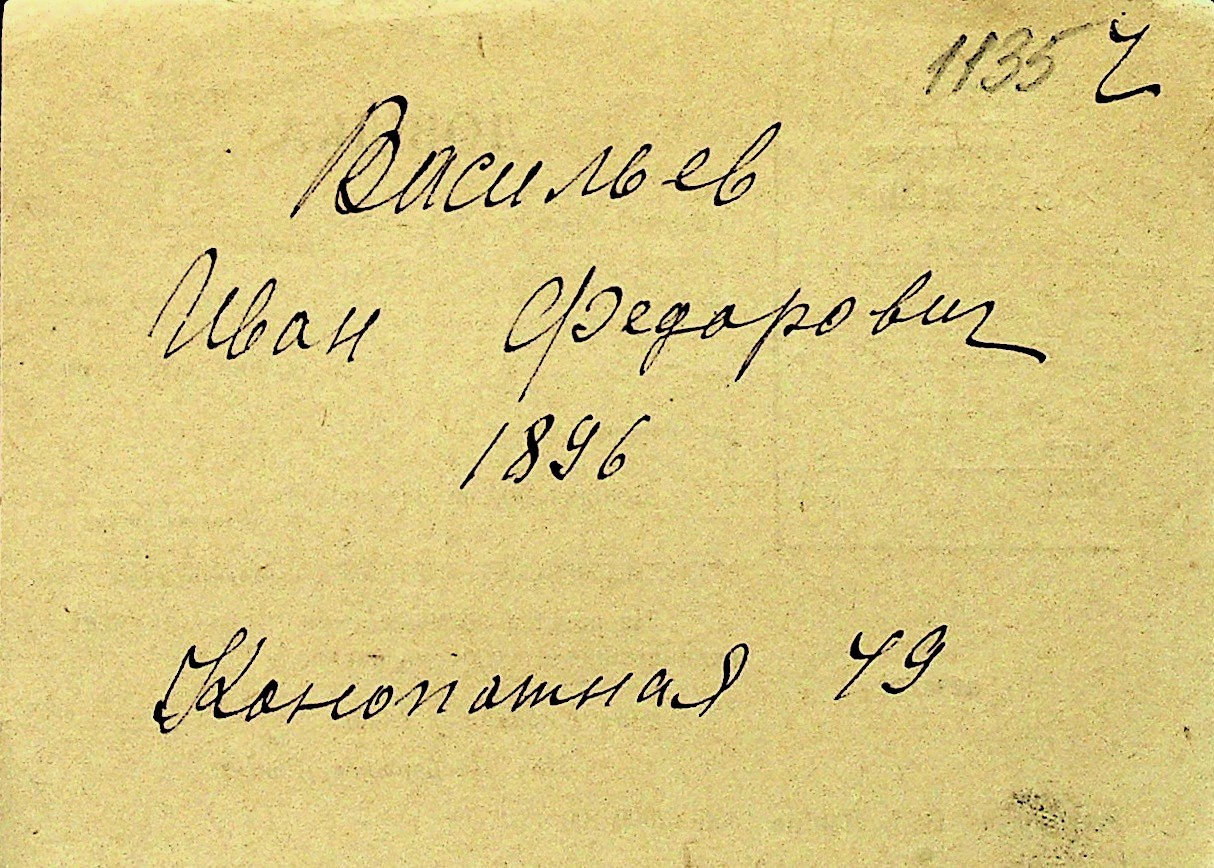 1135 Ч
Васильев
Иван Федорович
1896
Конопатная 49